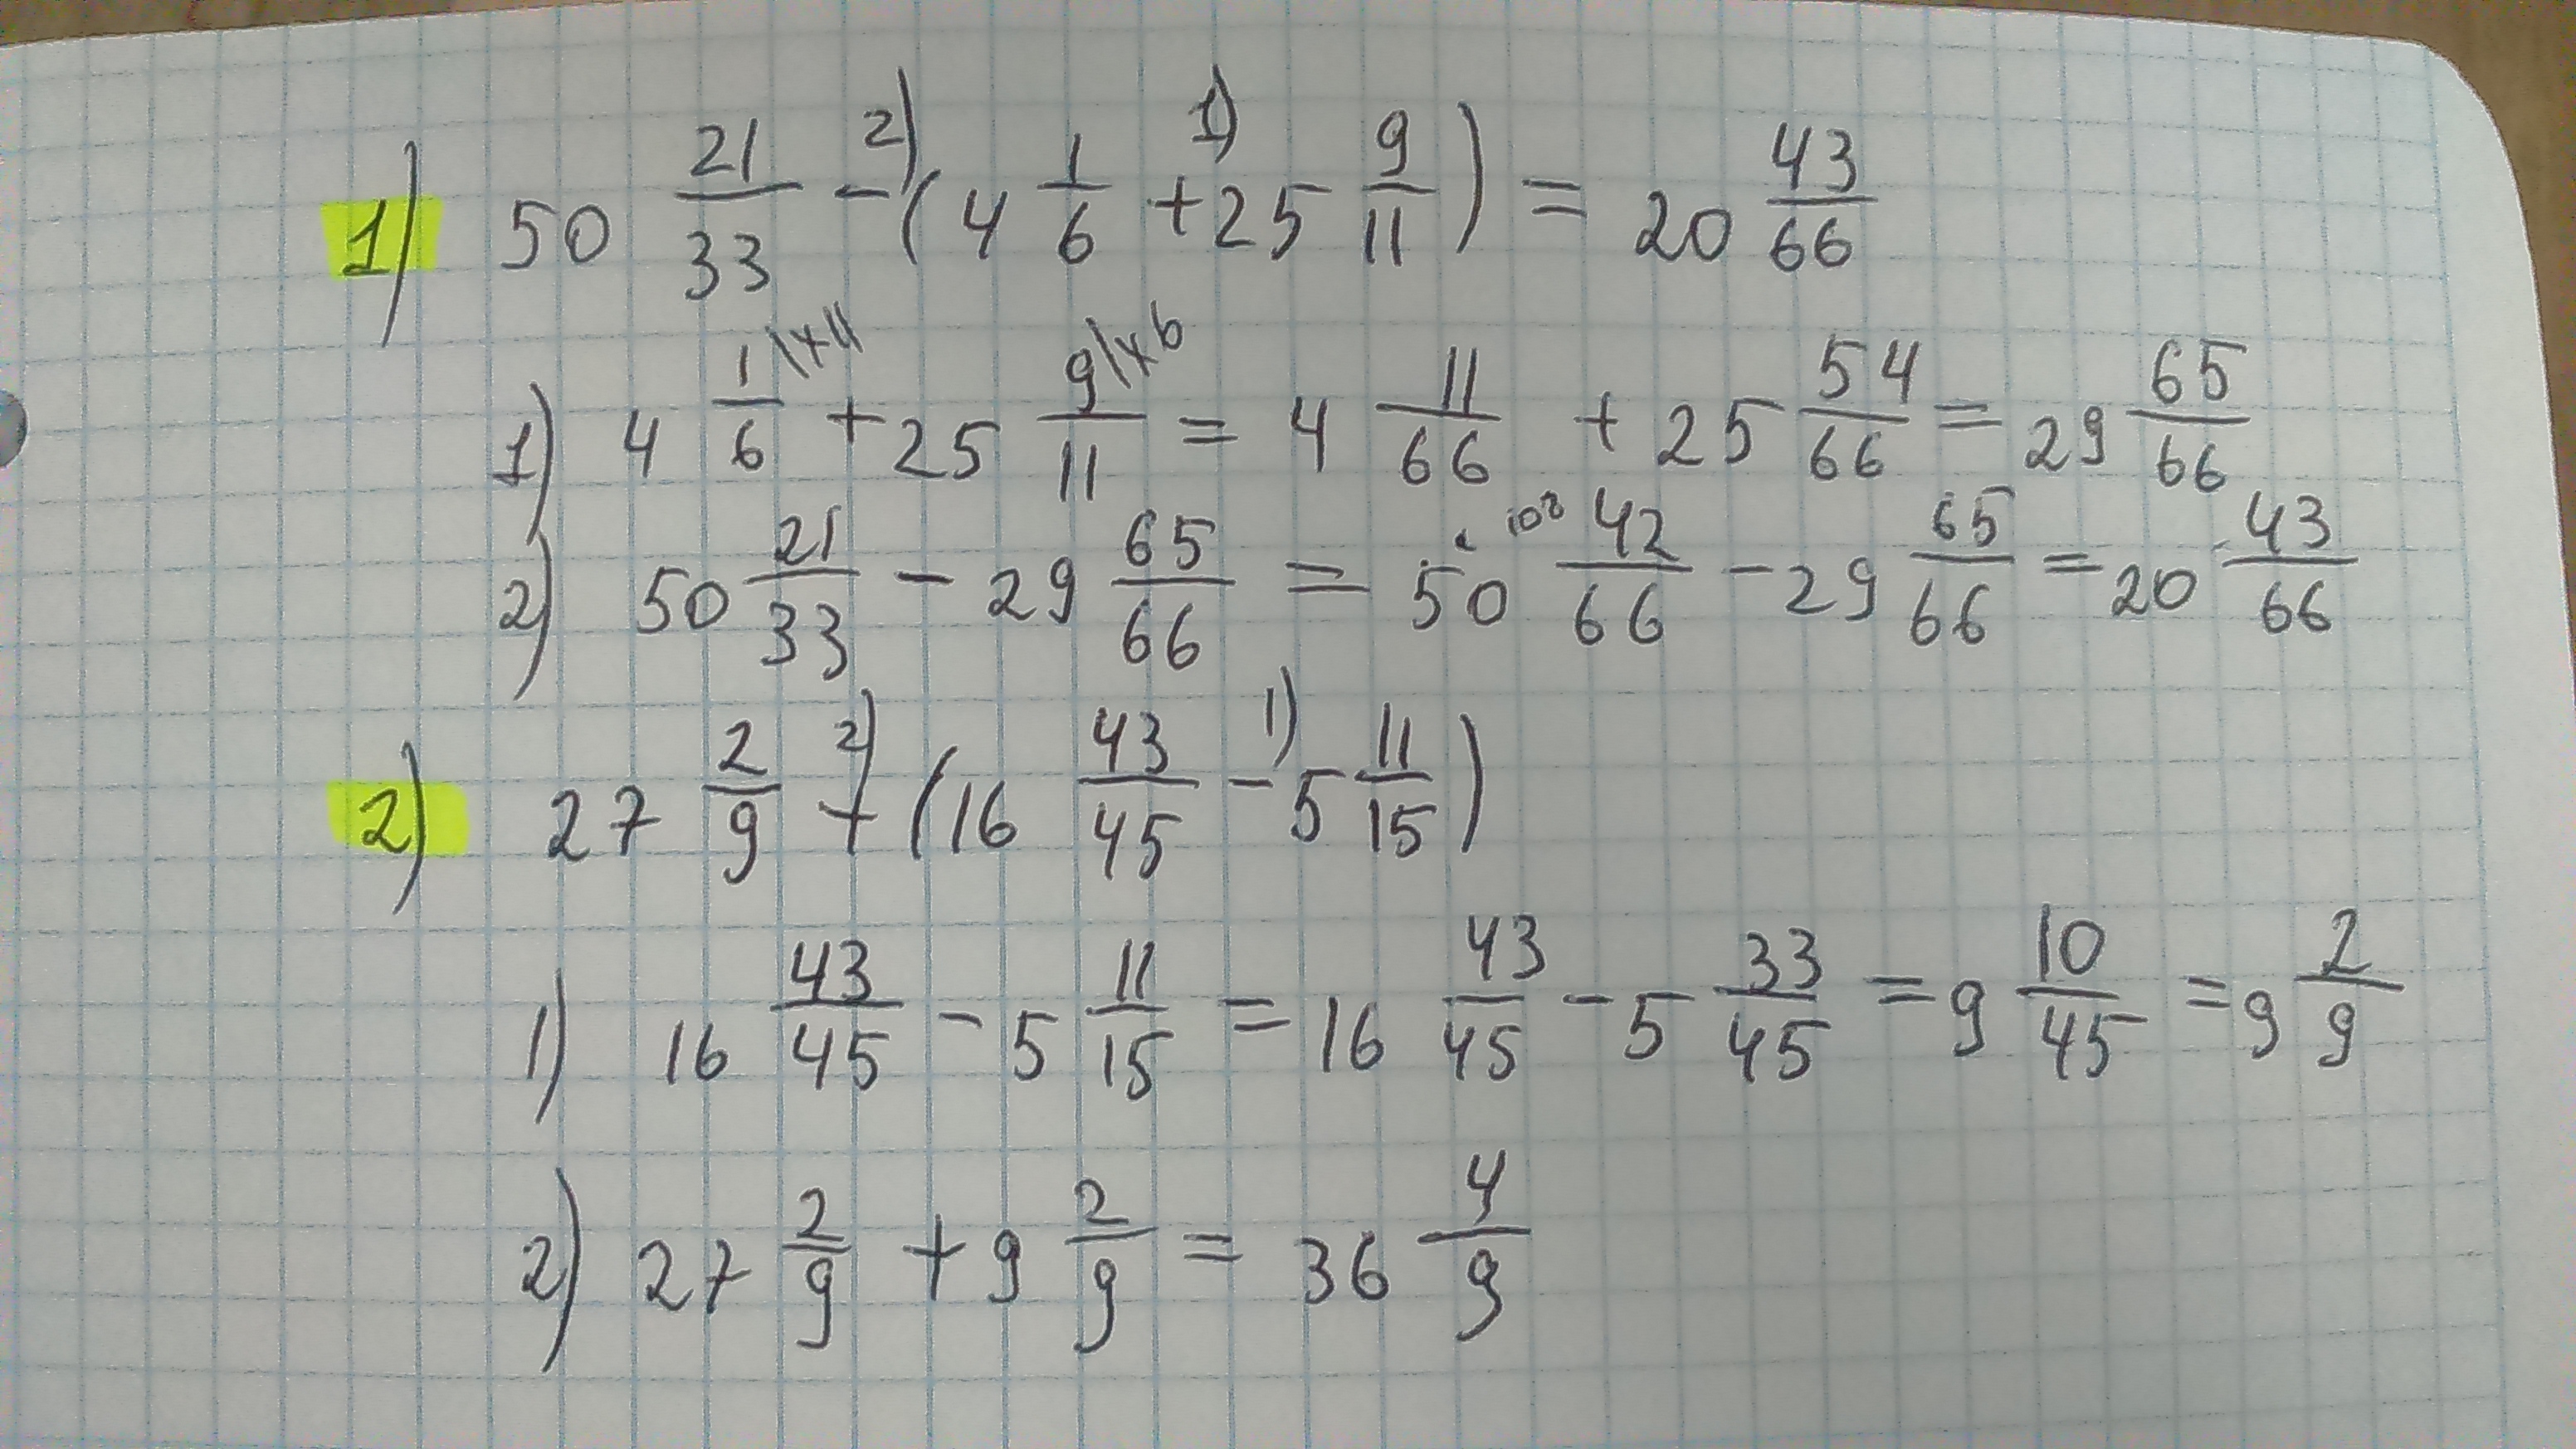 1) 50 21/33 -2) (4 1/6 +1) 25 9/11) = 20 43/66
1) 4 1/6 \x11 + 25 9/11 \x6 = 4 11/66 + 25 54/66 = 29 65/66
2) 50 21/33 - 29 65/66 = 50 108 42/66 - 29 65/66 = 20 43/66
2) 27 2/9 +2) (16 43/45 -1) 5 11/15)
1) 16 43/45 - 5 11/15 = 16 43/45 - 5 33/45 = 9 10/45 = 9 2/9
2) 27 2/9 + 9 2/9 = 36 4/9